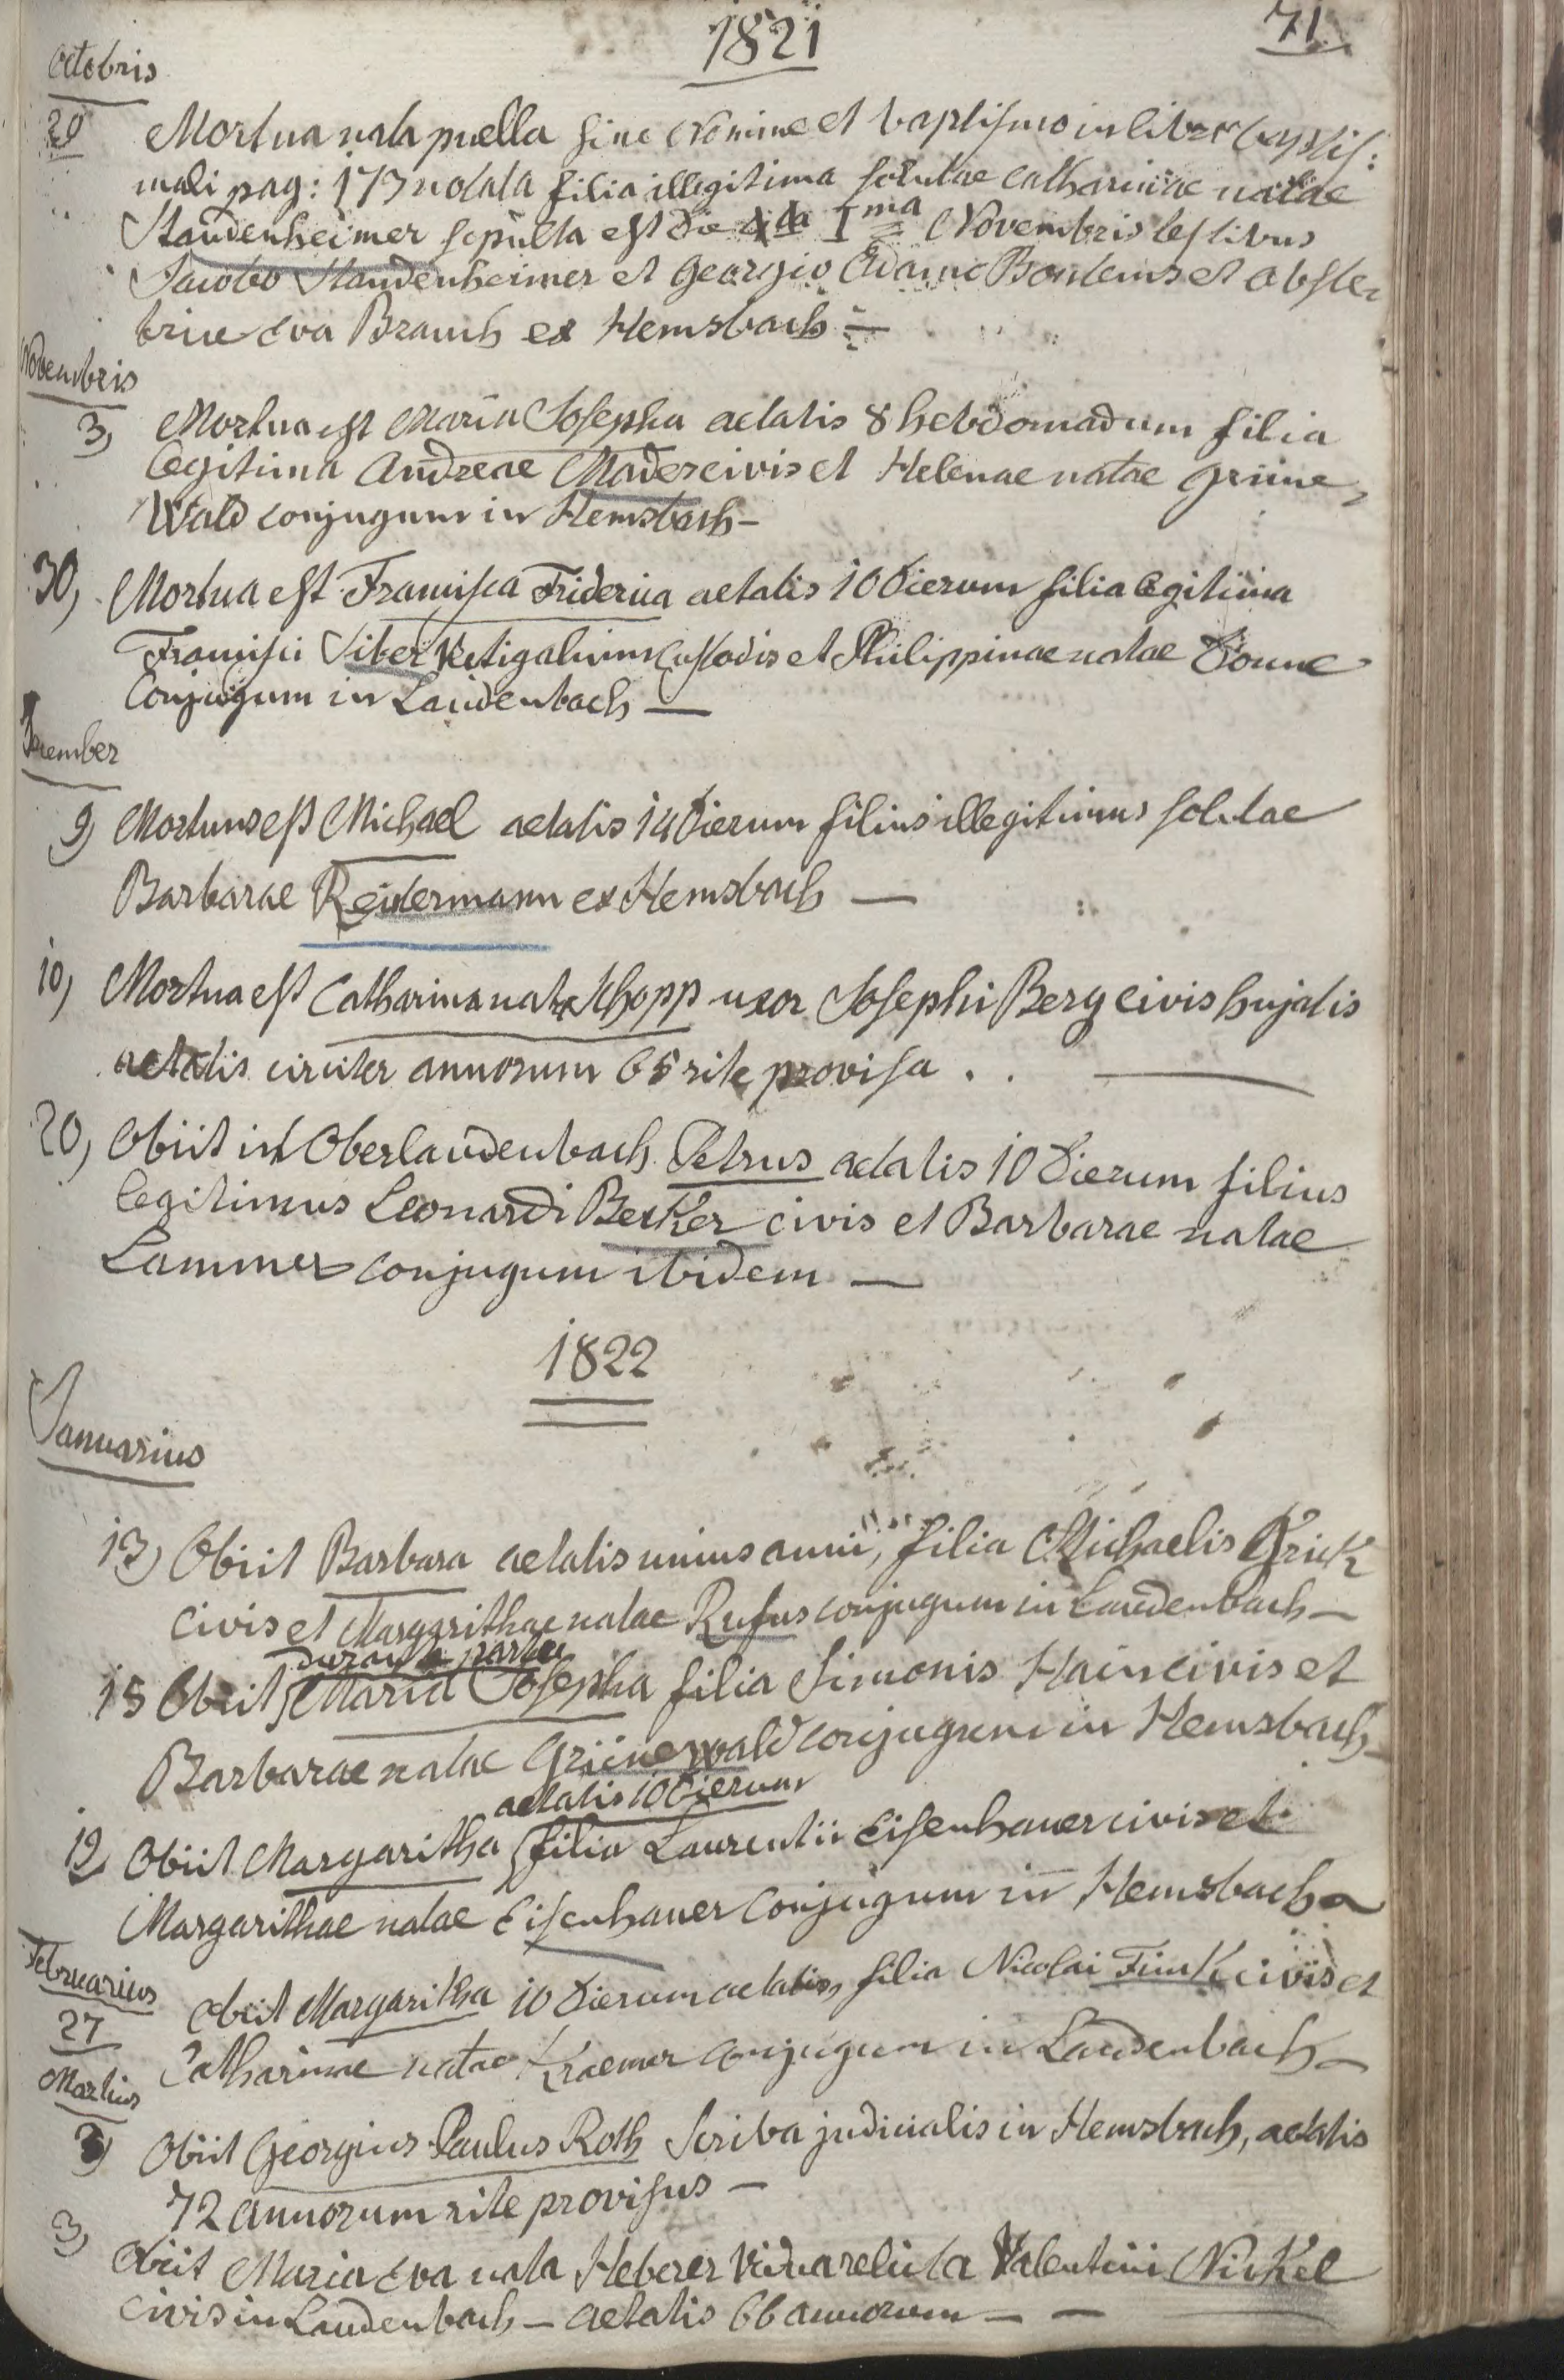 1821
71
Octobris
29 Mortua nata puella sine Nomine et baptismo in libro baptis:
mali pag: 173 notata filia illegitima solutae Catharinae natae
Staudenheimer sepulta est die Ima Novembris testibus
Jacobo Staudenheimer et Georgio Adamo Bontems et obste-
trice Eva Brauch ex Hemsbach
Novembris
3, Mortua est Maria Josepha aetatis 8 hebdomadum filia
legitima Andreae Mader civis et Helenae natae Grüne-
Wald conjugum in Hemsbach -
30, Mortua est Francisca Fridericia aetatis 10 dierum filia legitima
Francisci Siber Vectigalium Custodis et Philippinae natae
Conjugum in Laudenbach —
December
9, Mortuus est Michael aetatis 14 dierum filius illegitimus solutae
Barbarae Reidermann ex Hemsbach —
10, Mortua est Catharina nata Schopp uxor Josephi Berg civis hujatis
aetatis circiter annorum 65 rite provisa . . —
20, Obiit in Oberlaudenbach Petrus aetatis 10 dierum filius
legitimus Leonardi Becker civis et Barbarae natae
Lammer conjugum ibidem —
1822
Januarius
13, Obiit Barbara aetatis unius anni, filia Michaelis Frick
civis et Margarithae natae Rufus conjugum in Laudenbach —
durante partu
15 Obiit Maria Josepha filia Simonis Hain civis et
Barbarae natae Grünewald conjugum in Hemsbach —
aetatis 10 dierum
12 Obiit Margaritha filia Laurentii Eisenhauer civis et
Margarithae natae Eisenhauer Conjugum in Hemsbach
Februarius
27 Obiit Margaritha 10 dierum aetatis, filia Nicolai Fink civis et
Catharinae natae Kraemer conjugum in Laudenbach —
Martius
3, Obiit Georgius Paulus Roth Scriba judicialis in Hemsbach, aetatis
72 annorum rite provisus —
3, Obiit Maria Eva nata Heberer Vidua relicta Valentini Nickel
civis in Laudenbach — aetatis 66 annorum — —